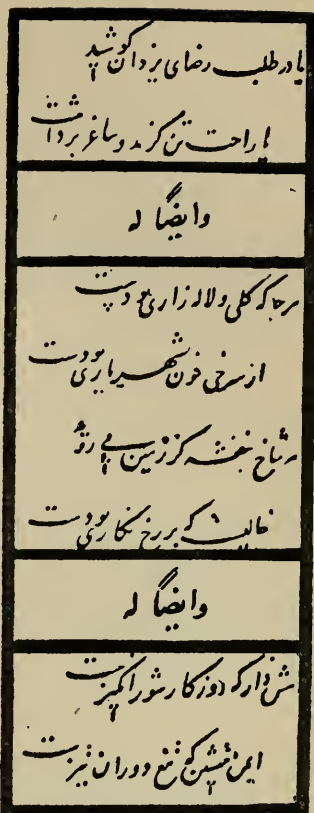 یا در طلب رضای یزدان کوشید
یا راحت تن گزید و ساغر برداشت
وایضاً له
هر جا که گلی و لاله زاری بودست
از سرخی خون شهریاری بودست
هر شاخ بنفشه کز زمین می روید
خالیست که بر رخ نگاری بودست
وایضاً له
هش دار که روزگار شورانگیزست
ایمن منشین که تیغ دوران تیزست